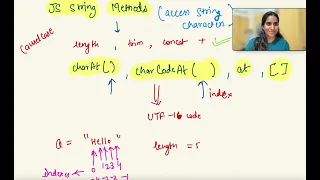 JS String Methods (access string character)
camelcase
length, trim, concat +
charAt( ), charCodeAt( ), at, [ ]
index
UTF-16 code
a = "Hello" length = 5
Index → 0 1 2 3 4